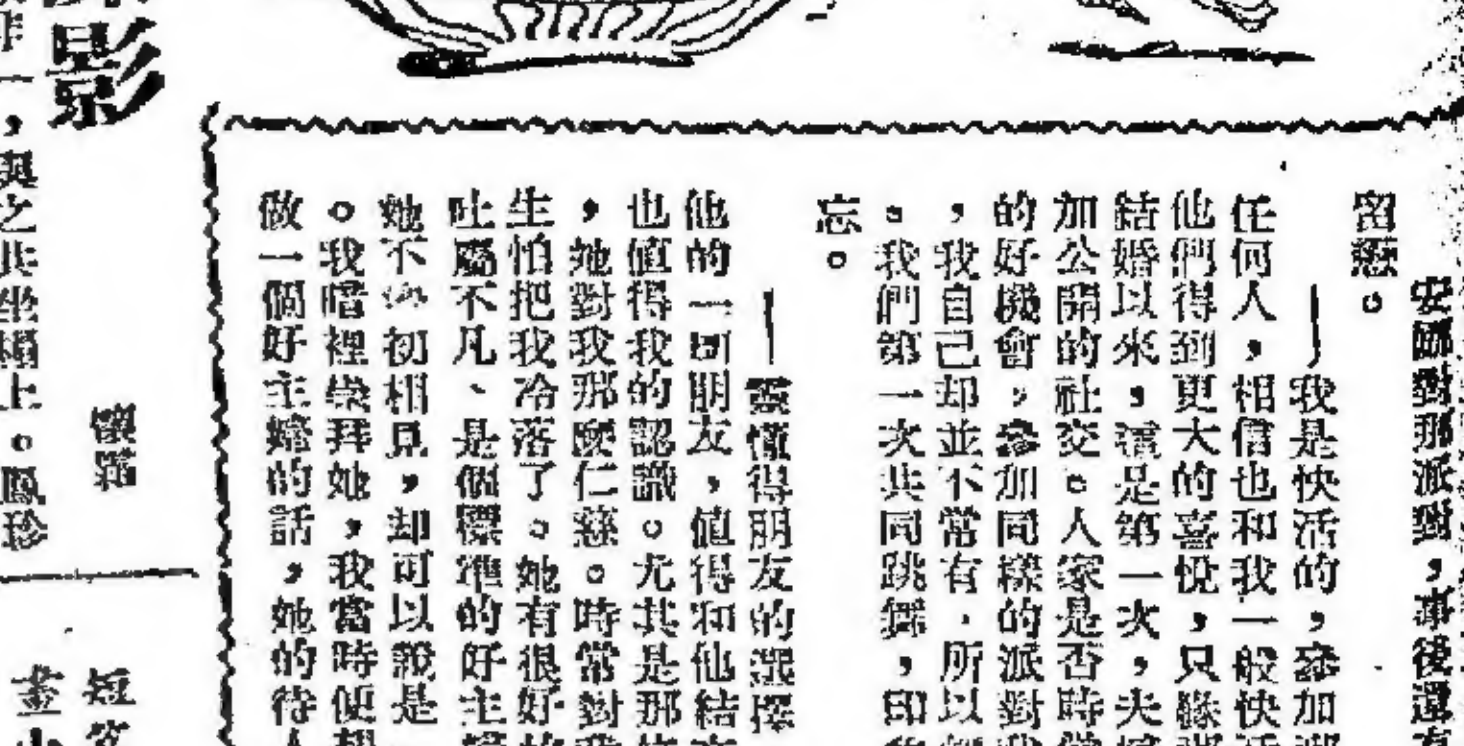 安娜對那派對，事後還有
留戀。
——我是快活的，參加那
任何人，相信也和我一般快活
他們得到更大的喜悅，只緣那
結婚以來，還是第一次，夫
加公開的社交。人家是否時常
的好機會，參加同樣的派對我
，我自己却並不常有，所以
。我們第一次共同跳舞，印象
忘。
——靈懂得朋友的選擇
他的一切朋友，值得和他結交
也值得我的認識。尤其是那
，她對我那麼仁慈。時常對我
生怕把我冷落了。她有很好的
吐屬不凡、是個標準的好主婦
她不初相見，却可以說是一
。我暗裡崇拜她，我當時便想
做一個好主婦的話，她的待人
影
懷
非一，與之共坐榻上。鳳珍
短
畫